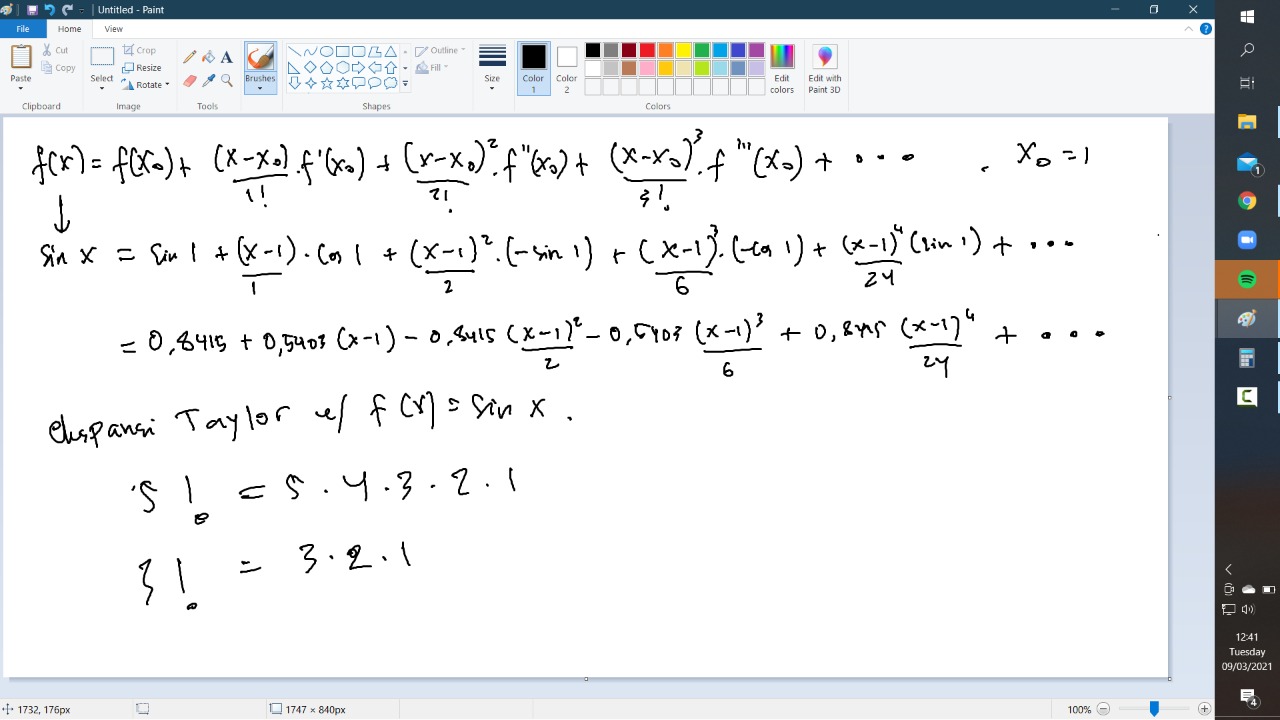 Untitled - Paint
File Home View
Paste Cut Copy Select Crop Resize Rotate Brushes Outline Fill Size Color 1 Color 2 Edit colors Edit with Paint 3D
Clipboard Image Tools Shapes Colors
f(x) = f(x₀) + (x-x₀)/1! . f'(x₀) + (x-x₀)²/2! . f''(x₀) + (x-x₀)³/3! . f'''(x₀) + ••• . x₀ = 1
↓
sin x = sin 1 + (x-1)/1 · cos 1 + (x-1)²/2 . (-sin 1) + (x-1)³/6 . (-cos 1) + (x-1)⁴/24 (sin 1) + •••
= 0,8415 + 0,5403 (x-1) - 0,8415 (x-1)²/2 - 0,5403 (x-1)³/6 + 0,8415 (x-1)⁴/24 + •••
ekspansi Taylor u/ f(x) = sin x .
5! = 5 . 4 . 3 . 2 . 1
3! = 3 . 2 . 1
1732, 176px 1747 × 840px 100%
1
12:41
Tuesday
09/03/2021
4